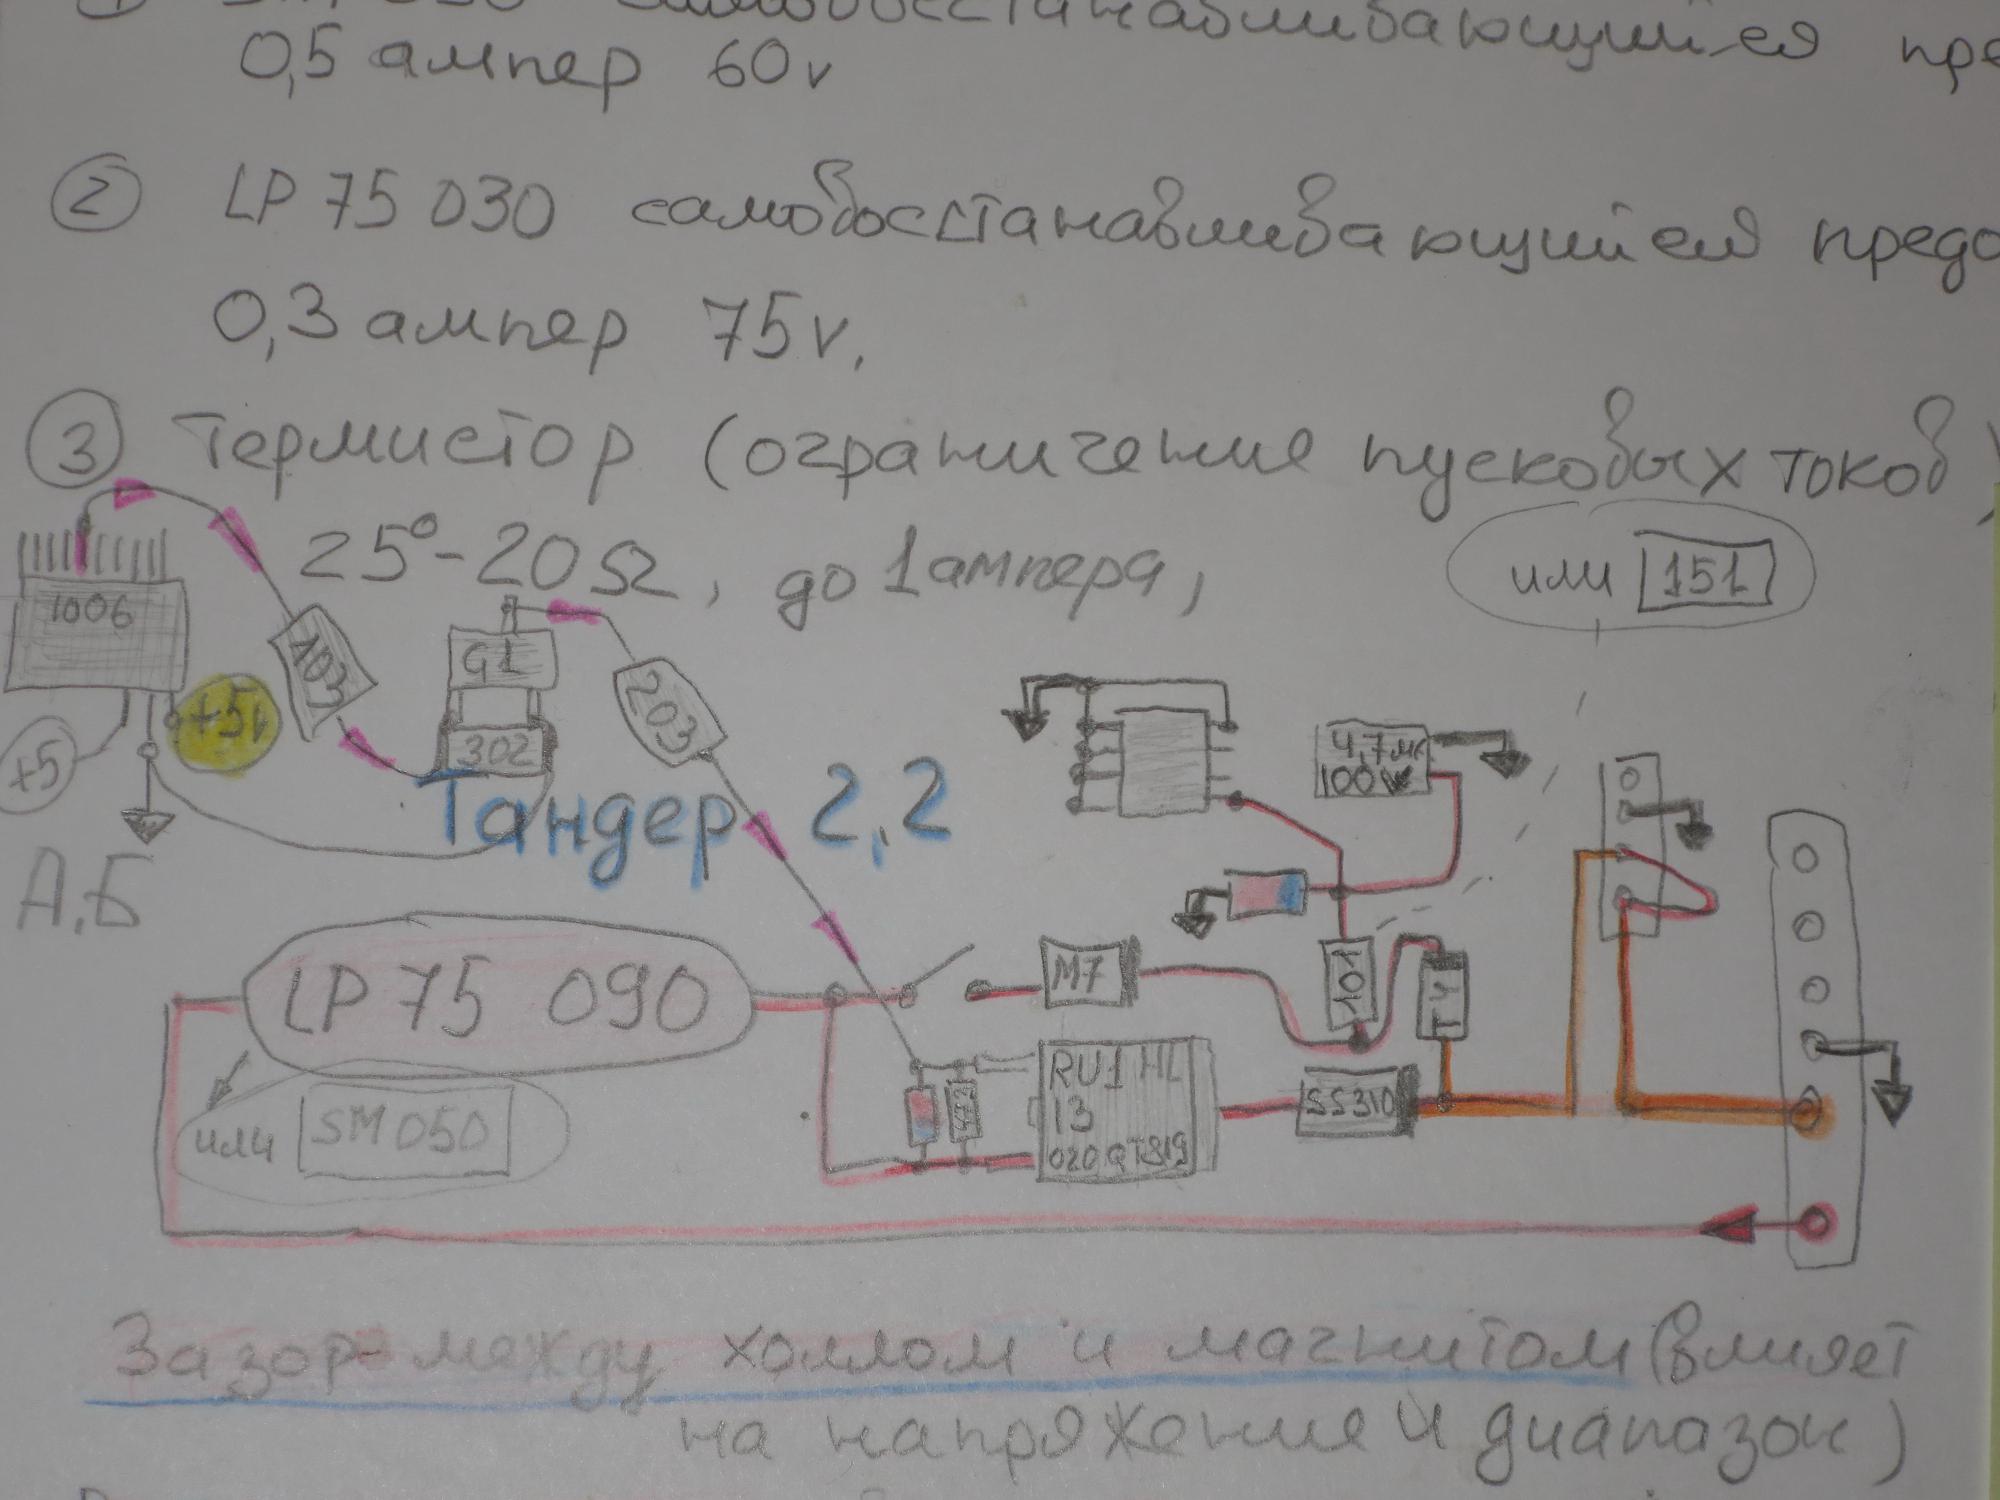 0,5 ампер 60v
② LP 75 030 самовосстанавливающийся
0,3 ампер 75v.
③ Термистор (ограничение пусковых токов)
25° - 20Ω, до 1 ампера,
или 151
1006
103
G1
302
203
+5v
+5
4,7мк
100v
Тандер 2,2
А,Б
LP 75 090
M7
101
T4
или SM 050
473
RU1HL
13
020 QT819
SS310
Зазор между холлом и магнитом (влияет
на напряжение и диапазон)